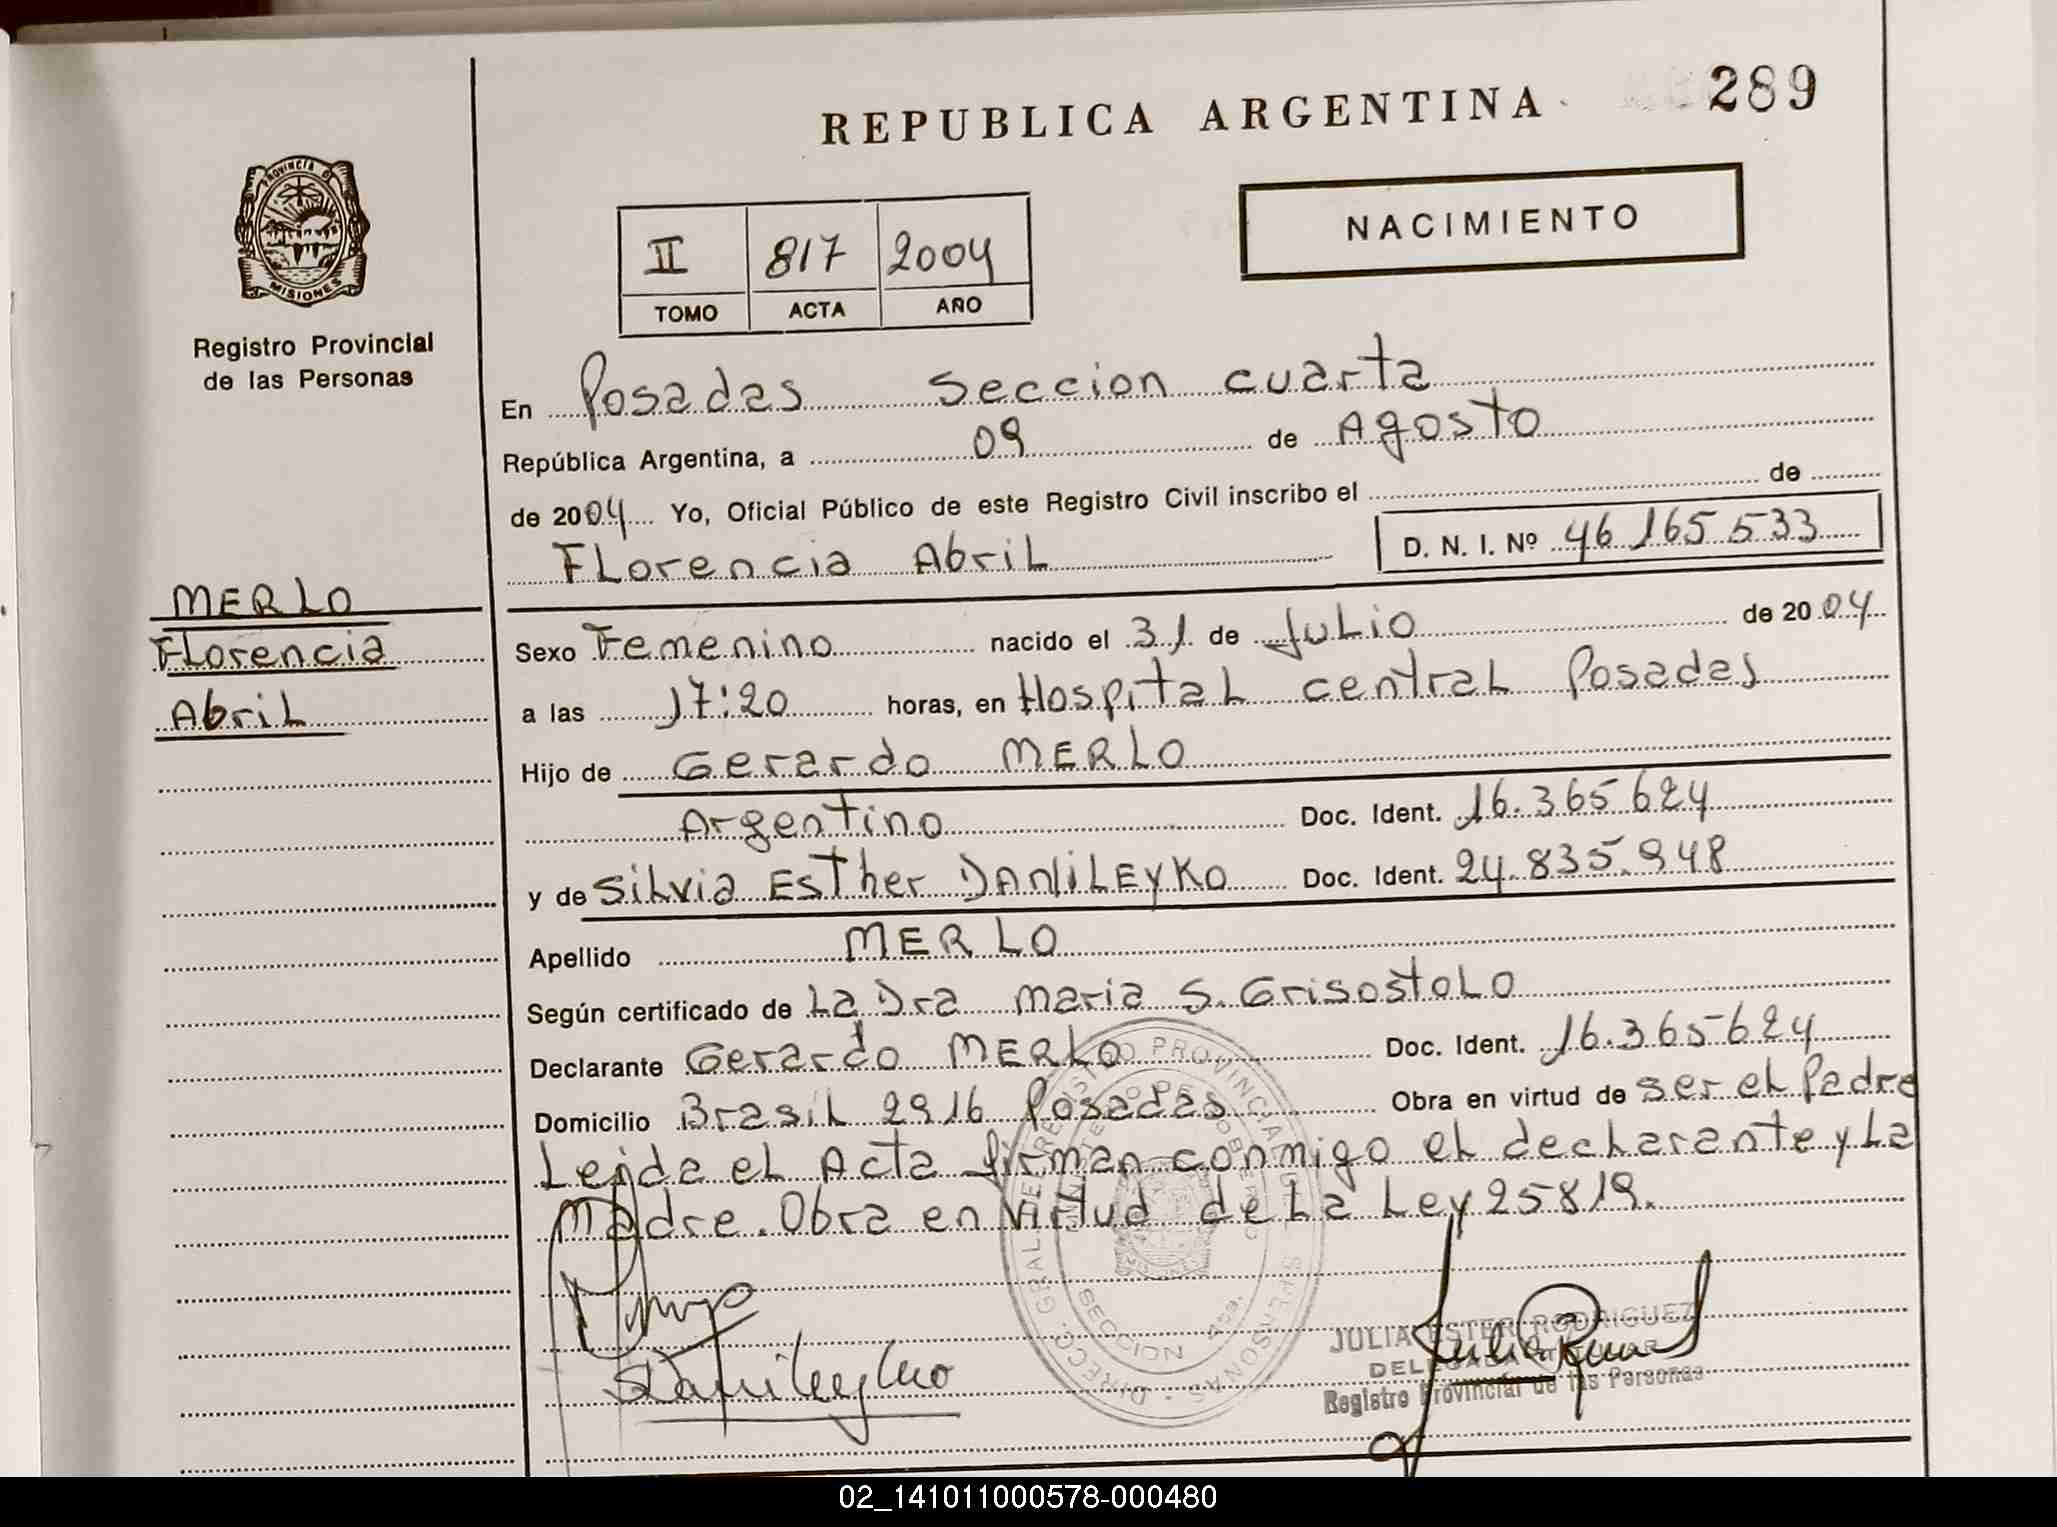 REPUBLICA ARGENTINA
289
PROVINCIA DE
MISIONES
Registro Provincial
de las Personas
NACIMIENTO
II 817 2004
TOMO ACTA AÑO
En Posadas Seccion cuarta
República Argentina, a 09 de Agosto
de 2004 Yo, Oficial Público de este Registro Civil inscribo el de
Florencia Abril D. N. I. Nº 46 165 533
MERLO
Florencia
Abril
Sexo Femenino nacido el 31 de Julio de 2004
a las 17:20 horas, en Hospital central Posadas
Hijo de Gerardo MERLO
Argentino Doc. Ident. 16.365 624
y de Silvia Esther DANILEYKO Doc. Ident. 24.835.948
Apellido MERLO
Según certificado de La Dra Maria S. Grisostolo
Declarante Gerardo MERLO Doc. Ident. 16.365 624
Domicilio Brasil 2916 Posadas Obra en virtud de ser el Padre
Leida el Acta firman conmigo el declarante y La
Madre. Obra en Virtud de La Ley 25819.
SDanileyko
JULIA ESTER RODRIGUEZ
Registro Provincial de las Personas
02_141011000578-000480